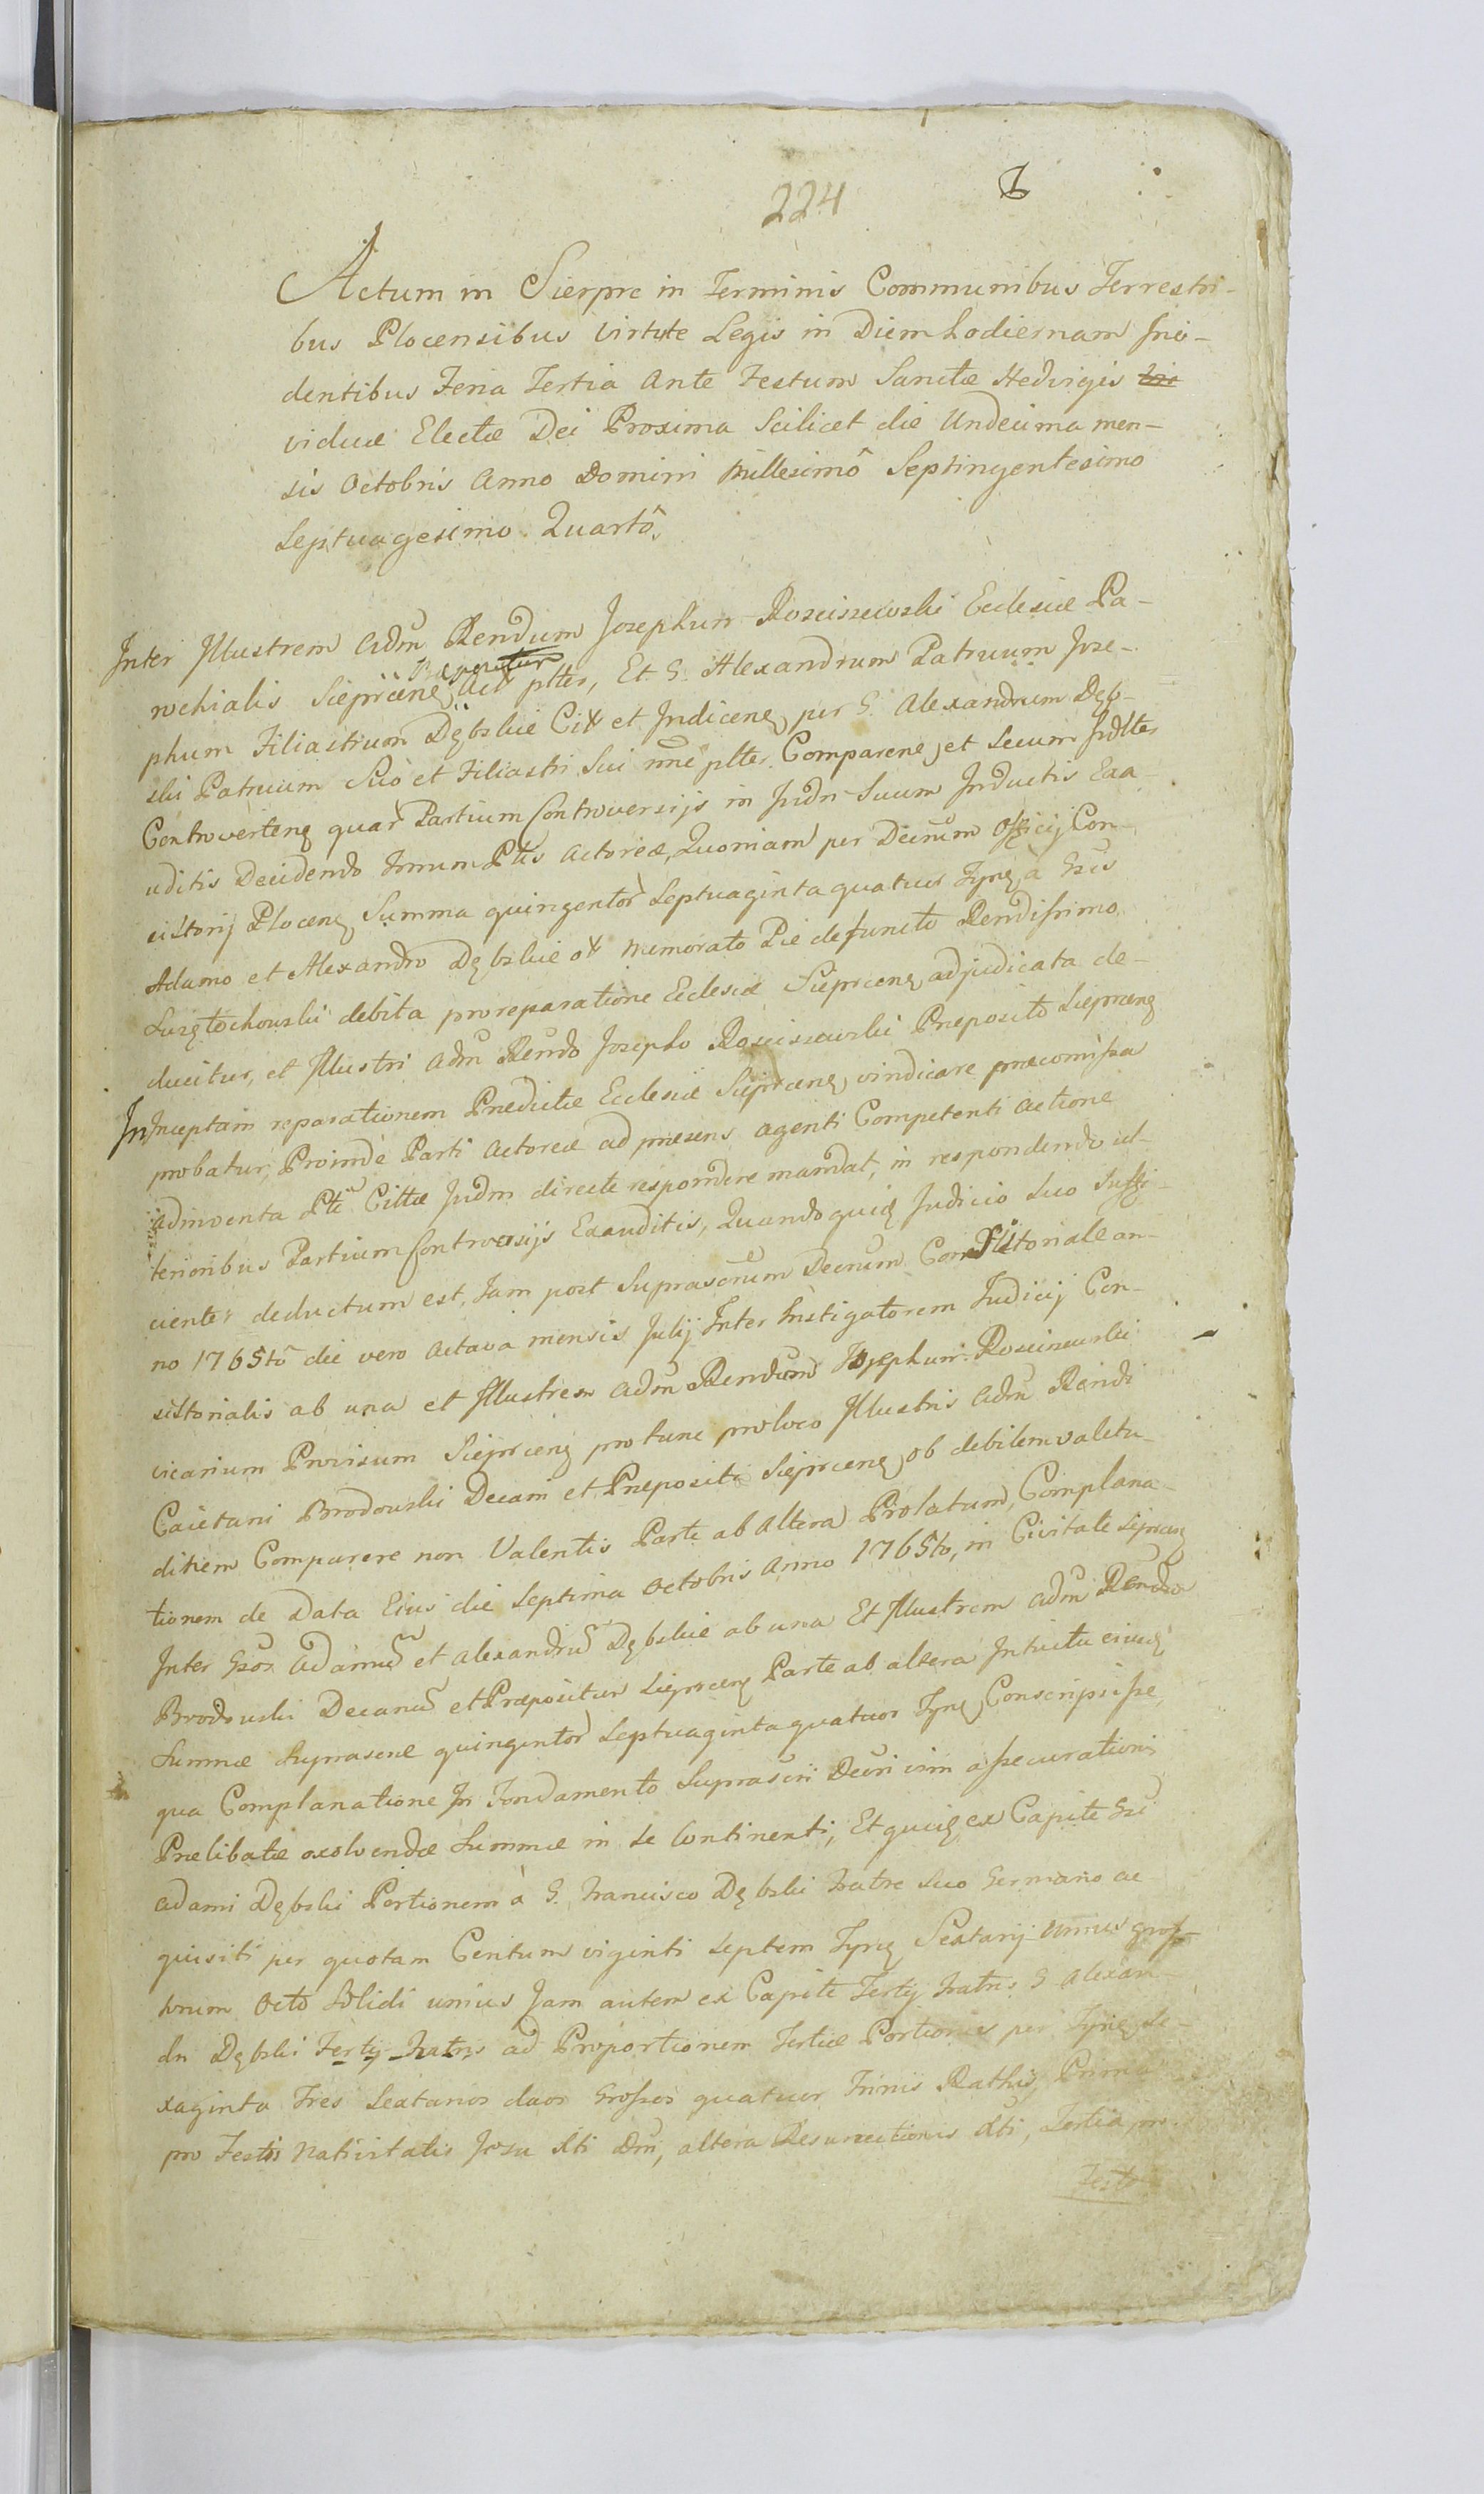 224
Actum in Sierpc in Terminis Communibus Terrestri-
bus Plocensibus virtute Legis in Diem hodiernam Inci-
dentibus Feria Tertia Ante Festum Sanctæ Hedvigis
viduæ Electæ Dei Proxima Scilicet die Undecima men-
sis Octobris Anno Domini Millesimô Septingentesimo
Septuagesimo Quartô.
Inter Illustrem Adm Rendum Josephum Rosciszewski Ecclesiæ Pa-
rochialis Sieprcen Præpositum Act pltes, Et G. Alexandrum Patruum Jose-
phum Filiastrum Dębskie Cit et Indicen per G. Alexandrum Dęb-
ski Patruum Suo et Filiastri Sui nne pltes Comparen et Secum Judltes
Controverten quar Partium Controversijs in Judm Suum Inductis Exa-
uditis Decidendo Ptis Actoreæ, Quoniam per Decrum Officij Con-
sistorij Plocen Summa quingentor Septuaginta quatuor Tynf à Gsis
Adamo et Alexandro Dębskie memorato Pie defuncto Rendissimo
debita pro reparatione Ecclesiæ Sieprcen adjudicata de-
ducitur, et Illustri Adm Rendo Josepho Rosciszewski Præposito Sieprcen
In Inceptam reparationem Prædictæ Ecclesiæ Sieprcen vindicare præcomissa
probatur, Proindè Parti Actoreæ ad præsens agenti Competenti actione
adinventa Pti Cittæ Judm directe respondere mandat, in respondendo ul-
terioribus Partium Controversijs Exauditis, Quandoquid Judicio Suo Suffi-
cienter deductum est, Iam post Suprascrum Decrum Consistoriale an-
no 1765tô die vero Octava mensis Julij Inter Instigatorem Judicij Con-
sistorialis ab una et Illustrem Adm Rendum Josephum Rosciszewski
vicarium Provisum Sieprcen pro tunc pro loco Illustris Adm Rendi
Caietani Brodowski Decani et Præpositi Sieprcen ob debilem valetu-
dinem Comparere non Valentis Parte ab Altera Prolatum, Complana-
tionem de Data Eius die Septima Octobris Anno 1765to, in Civitate Sieprcen
Inter Gsos Adamum et Alexandrum Dębskie ab una Et Illustrem Adm Rendum
Brodowski Decanum et Præpositum Sieprcen Parte ab altera Intuitu eiusd
Summæ Suprascræ quingentor Septuaginta quatuor Tynf Conscripsisse,
qua Complanatione In Fondamento Suprascri Decri vim assecurationis
Prælibatæ exolvendæ Summæ in se Continenti, Et quid ex Capite Gsi
Adami Dębski Portionem à G. Francisco Dębski Fratre Suo Germano ac
quisiti per quotam Centum viginti Septem Tynf Sextarij unius gros-
sorum Octo Solidi unius Jam autem ex Capite Tertij Fratris G. Alexan-
dri Dębski Tertij Fratris ad Proportionem Tertiæ Portionis per Tynf Se-
xaginta Tres Sextarios duos Grossos quatuor Trinis Rathis Prima
pro Festis Nativitatis Jesu Xti Dni, altera Resurrectionis Xti, Tertia pro
Festo